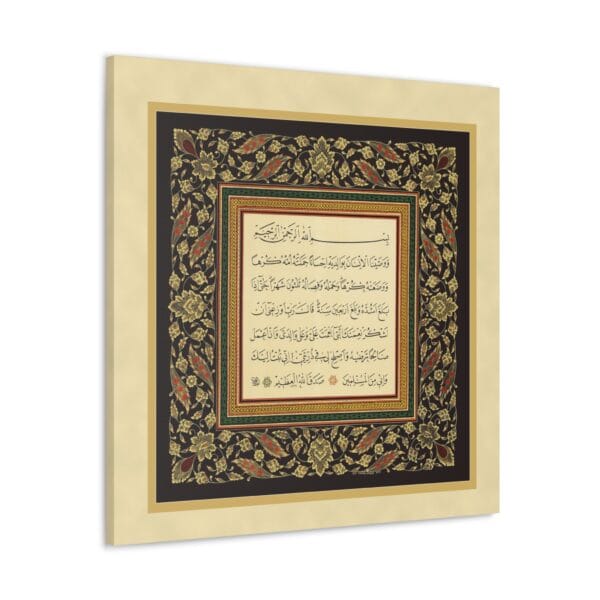 بسم الله الرحمن الرحيم
ووصينا الإنسان بوالديه إحسانا حملته أمه كرها
ووضعته كرها وحمله وفصاله ثلثون شهرا حتى إذا
بلغ أشده وبلغ أربعين سنة قال رب أوزعني أن
أشكر نعمتك التي أنعمت علي وعلى والدي وأن أعمل
صالحا ترضيه وأصلح لي في ذريتي إني تبت إليك
وإني من المسلمين صدق الله العظيم